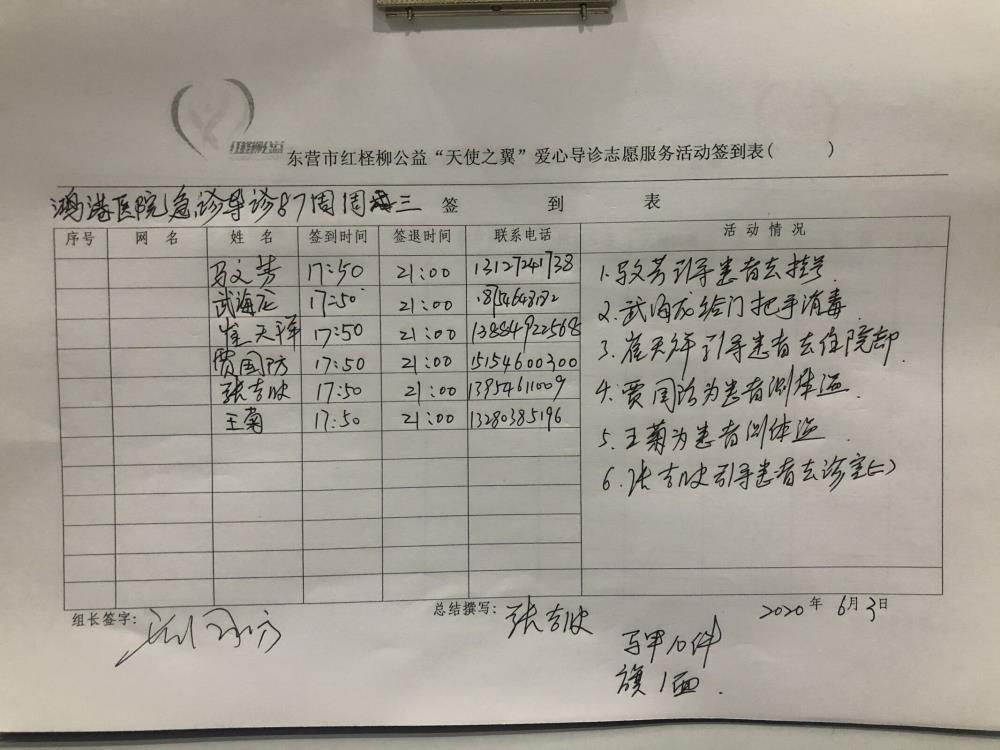 红柽柳公益
东营市红柽柳公益“天使之翼”爱心导诊志愿服务活动签到表( )
鸿港医院急诊导诊87周周三 签到表
序号 网名 姓名 签到时间 签退时间 联系电话 活动情况
马文芳 17:50 21:00 13127241738
武海龙 17:50 21:00 18754648182
崔天祥 17:50 21:00 13884922568
贾国防 17:50 21:00 15154600300
张吉波 17:50 21:00 13954611009
王菊 17:50 21:00 13280385196
1.马文芳引导患者去挂号
2.武海龙给门把手消毒
3.崔天祥引导患者去住院部.
4.贾国防为患者测体温.
5.王菊为患者测体温
6.张吉波引导患者去诊室(二)
组长签字: 总结撰写: 张吉波 2020年6月3日
马甲10件
旗1面.